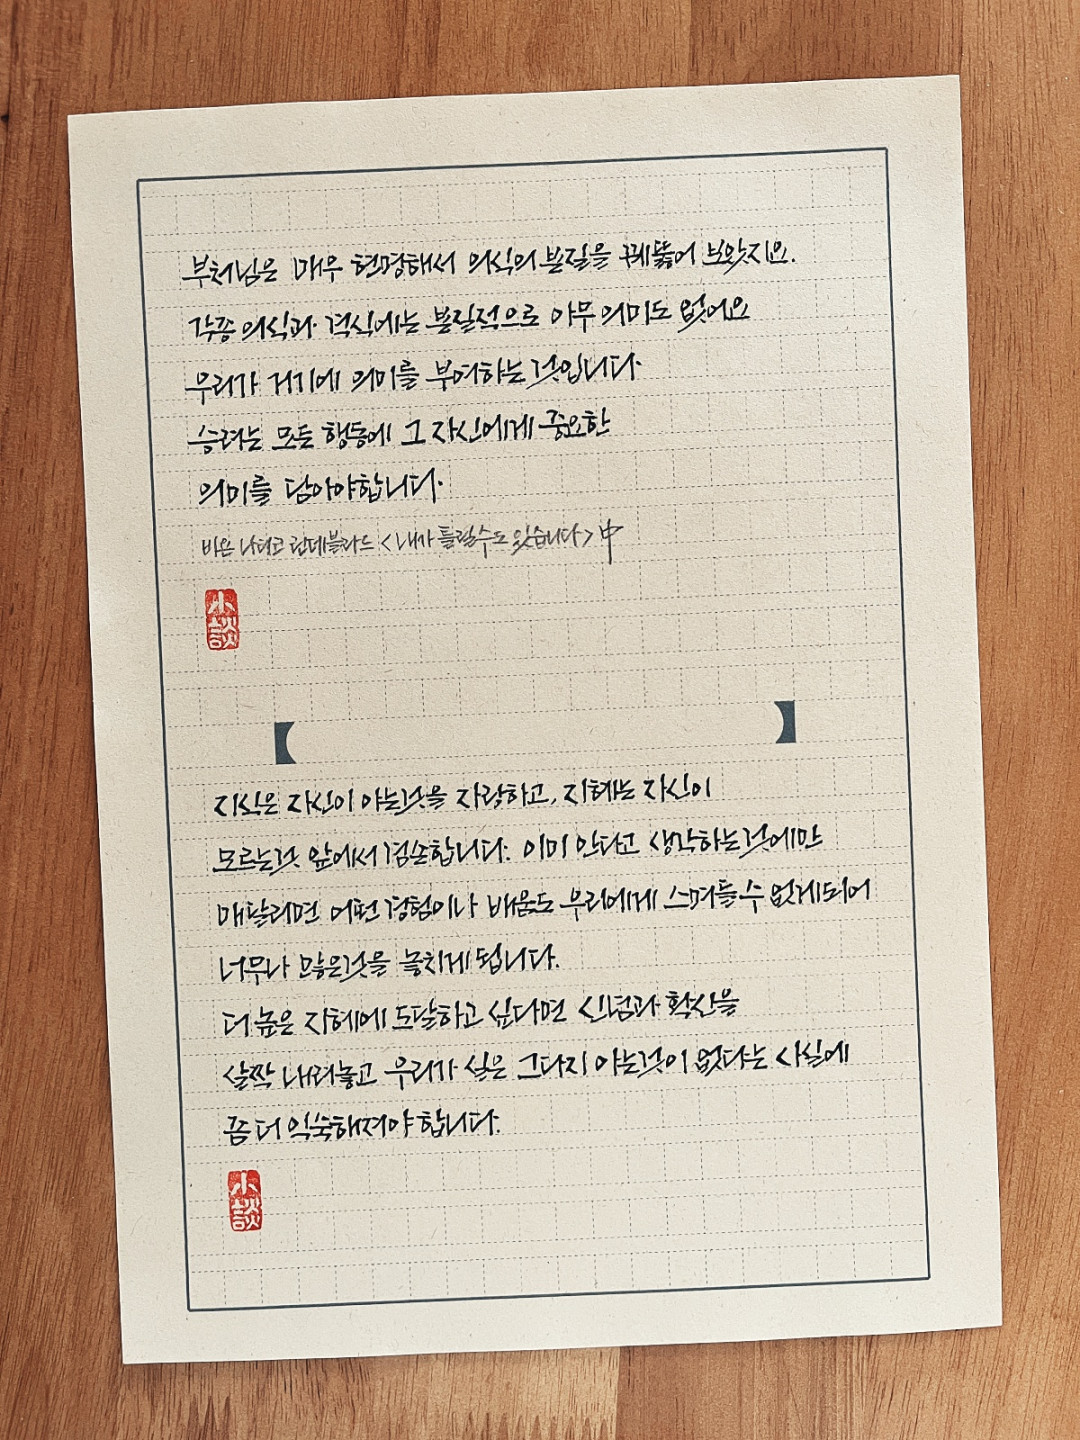 부처님은 매우 현명해서 의식의 본질을 꿰뚫어 보았지요.
각종 의식과 격식에는 본질적으로 아무 의미도 없어요
우리가 거기에 의미를 부여하는 것입니다.
승려는 모든 행동에 그 자신에게 중요한
의미를 담아야합니다.
비욘 나티코 린데블라드 <내가 틀릴수도 있습니다> 中
小談
지식은 자신이 아는것을 자랑하고, 지혜는 자신이
모르는것 앞에서 겸손합니다. 이미 안다고 생각하는것에만
매달리면 어떤 경험이나 배움도 우리에게 스며들 수 없게되어
너무나 많은것을 놓치게 됩니다.
더 높은 지혜에 도달하고 싶다면 신념과 확신을
살짝 내려놓고 우리가 실은 그다지 아는것이 없다는 사실에
좀 더 익숙해져야 합니다.
小談